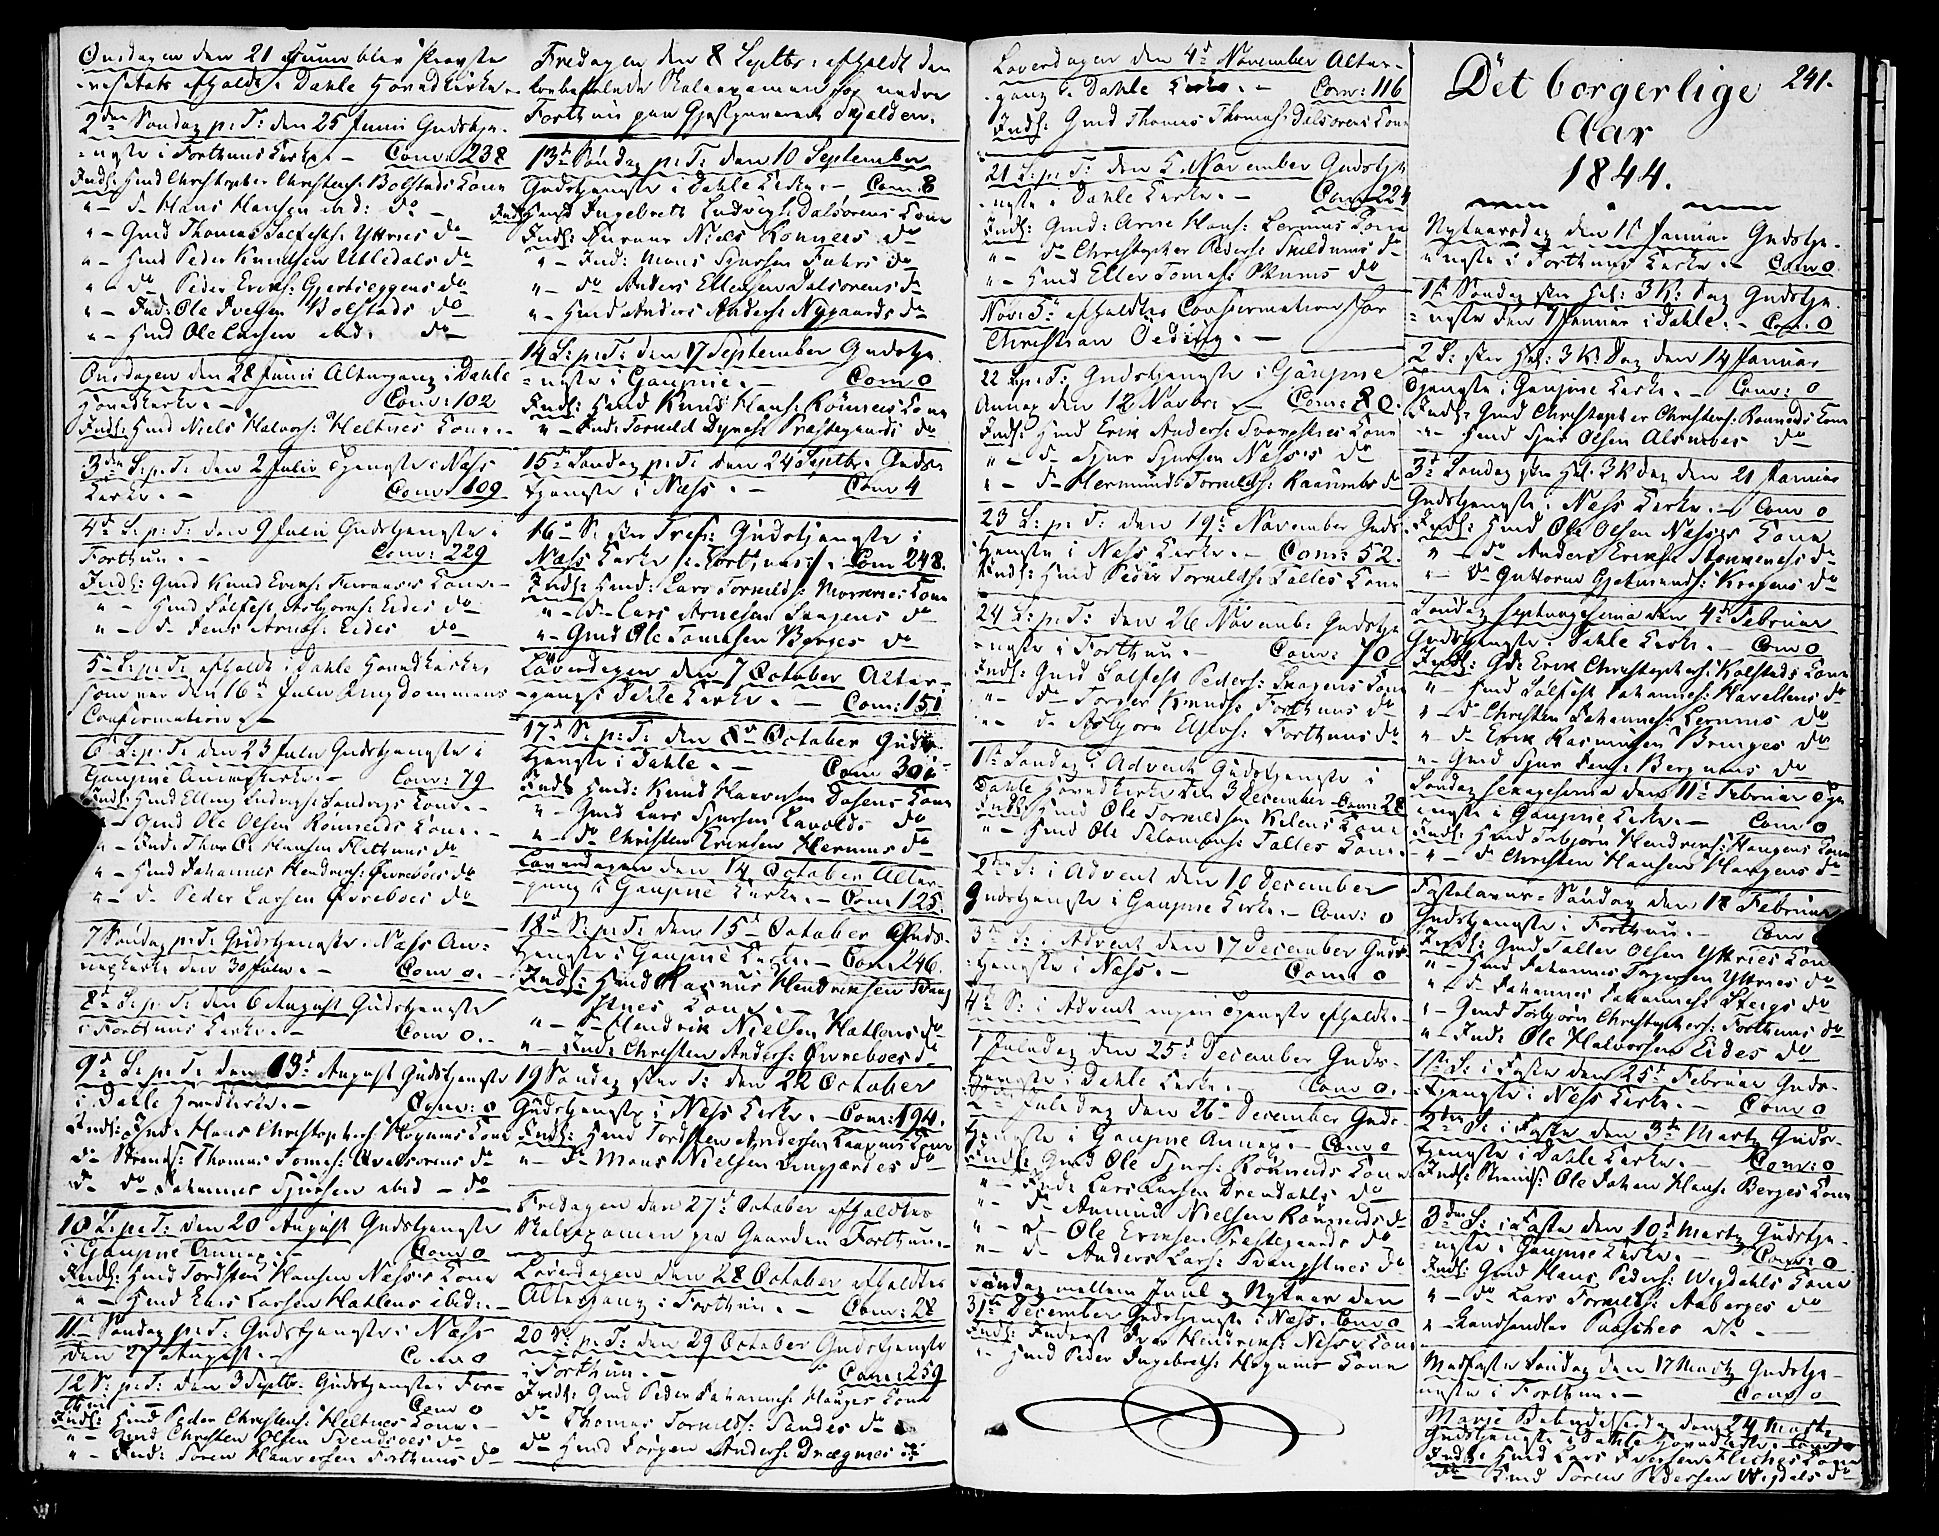 Onsdagen den 21 Junii blev Provste
visitats afholdt i Dahle Hovedkirke.
2den Søndag p: T: den 25 Junii Gudstje-
neste i Forthuns Kirke. — Com: 238
Indl: Hmd Christopher Christens: Bolstads Kone
" — d— Hans Hansen ibd: do —
" — Gmd Thomas Salfests: Yttries do
" — Hmd Peder Knudsen Uttedals do
" — do Peder Eriks: Gjerbseggens do
" — Ind: Ole Iversen Bolstads do
" — Hmd Ole Larsen ibd: do
Onsdagen den 28 Junii Altergang i Dahle
Hovedkirke. — Com: 102
Indl: Hmd Niels Halvors: Heltnes Kone. —
3den S: p: T: den 2 Julii Tjeneste i Næss
Kirke. — Com: 109
4de S: p: T: den 9 Julii Gudstjeneste i
Forthun. — Com: 229
Indl: Gmd Knud Eriks: Kone
" — Hmd Salfest Asbjørns: Eides do
" — d— Jens Arnes: Eides do
5te S: p: T: afholdt i Dahle Hovedkirke,
som var den 16de Julii Ungdommens
Confirmation. —
6te S: p: T: den 23 Julii Gudstjeneste i
Gaupne Annexkirke. — Com: 79
Indl: Hmd Elling Ludvigs: Sandvigs Kone. —
" — Gmd Ole Olsen Rønneids Kone. —
" — Ind: Thor O. Hansen do
" — Hmd Johannes Hendriks: Øvreboes do
" — d— Peder Larsen Øvreboes do
7 Søndag p: T: Gudstjeneste i Næss An-
nexkirke den 30 Julii. — Com: 0. —
8de S: p: T: den 6 August Gudstjeneste
i Forthuns Kirke. — Com: 0. —
9de S: p: T: den 13de August Gudstjeneste
i Dahle Hovedkirke. — Com: 0
Indl: Ind: Hans Christophers: Kone
do Strands: Thomas Tomas: do
do do Johannes Sjursen ibid — do
10 S: p: T: den 20 August Gudstjeneste
i Gaupne Annex. — Com: 0
Indl: Hmd Tordsten Hansen Næsses Kone
" — Hmd Lars Larsen Hatlens ibid: —
11te Søndag p: T: Gudstjeneste i Næss
den 27 August. — Com: 0
12 S: p: T: den 3 Septbr: Gudstjeneste i For-
thun — Com 0
Indl: Hmd Peder Christens: Heltnes Kone. —
" — Gmd Christen Olsen do
" — Ind: Søren Halvorsen Forthuns do
Fredagen den 8 Septbr: afholdt den
befalede Skoleexamen for nedre
Forthun paa Gjæstgiverstedet Skjolden.
13de Søndag p: T: den 10 September
Gudstjeneste i Dahle Kirke. — Com: 8
Indl: Hmd Ingebreth Ludvigs: Dalsørens Kone
Indl: Niels Rønneis do
" — Ind: Mons Sjursen do
" — do Anders Ellingsen Dalsørens do
" — Hmd Anders Anders: Nygaards do
14 S: p: T: den 17 September Gudstje-
neste i Gaupne. — Com 0
Indl: Hmd Knud Hans: Rønneis Kone
" — Ind: Torkild Præstegaards do
15de Søndag p: T: den 24 Septbr: Guds-
tjeneste i Næss. — Com 4
16de S: efter Tref: Gudstjeneste i
Næss Kirke /: Forthuns :/ Com 248.
Indl: Hmd: Lars Torkilds: Kone
" — d— Lars Arnesen do
" — Gmd Ole Tomesen Berges do
Løverdagen den 7 October Alter-
gang i Dahle Kirke. — Com: 151
17de S: p: T: den 8de October Guds-
tjeneste i Dahle. — Com 301
Indl Hmd: Knud Haavorsen Døsens Kone
" — Gmd Lars Sjursen do
" — do Christen Eriksen do
Løverdagen den 14 October Alter-
gang i Gaupne Kirke. — Com: 125.
18de S: p: T: den 15de October Guds-
tjeneste i Gaupne Kirke. — Com: 246.
Indl: Hmd Rasmus Hendriksen Svang-
stnes Kone. —
" — d— Hendrik Nielsen Hatlens do
" — Ind: Christen Anders: Øvreboes do
19 Søndag efter T: den 22 October
Gudstjeneste i Næss Kirke. — Com: 194.
Indl: Hmd Tordsten Andersen Kone
" — do Mons Nielsen do
Fredagen den 27de October afholdtes
Skoleexamen paa Gaarden Forthun. —
Løverdagen den 28 October afholdtes
Altergang i Forthun. — Com: 28
20 S: p: T: den 29 October Gudstjeneste
i Forthun. — Com: 259
Indl: Gmd Peder Johannes: Hauges Kone
do Thomas Torkilds: Sandes do
do Hmd Jørgen Anders: Drægnæs do
Løverdagen den 4de November Alter-
gang i Dahle Kirke. — Com: 116
Indl: Gmd Thomas Thomas: Dalsørens Kone
21 S: p: T: den 5 November Gudstje-
neste i Dahle Kirke. — Com: 224
Indl: Gmd: Arne Hans: Lerums Kone
" — d— Christopher Peders: Skildums do
" — Hmd Ellev Tomas: do
Nov: 7de afholdtes Confirmation for
Christian Oeding. —
22 S: p: T: Gudstjeneste i Gaupne
Annex den 12 Novbr: — Com: 80.
Indl: Hmd Erik Anders: Svangstnes Kone
" — d— Sjur Sjursen Næsses do
" — d— Hermund Torkilds: do
23 S: p: T: den 19de November Guds-
tjeneste i Næss Kirke. — Com: 52.
Indl: Hmd Peder Torkilds: Talles Kone
24 S: p: T: den 26 Novemb: Gudstje-
neste i Forthun. — Com: 70
Indl: Gmd Salfest Peders: Kone
" — do Torger Knuds: Forthuns do
" — d— Asbjørn Forthuns do
1ste Søndag i Advent Gudstjeneste i
Dahle Hovedkirke den 3 December Com: 28
Indl: Hmd Ole Torkildsen Kilens Kone
" — Hmd Ole Salamons: Talles Kone.
2den S: i Advent den 10 December
Gudstjeneste i Gaupne Kirke. — Com: 0
3die S: i Advent den 17 December Guds-
tjeneste i Næss. — Com: 0
4de S: i Advent ingen Tjeneste afholdt. —
1 Juledag den 25de December Guds-
tjeneste i Dahle Kirke. — Com 0.
2den Juledag den 26de December Guds-
tjeneste i Gaupne Annex. — Com 0
Indl: Gmd Ole Sjurs: Rønneids Kone
" — Ind: Lars Larsen Drendahls do
" — d— Anund Nielsen Rønneids do
" — d— Ole Eriksen Præstegaards do
" — d— Anders Lars: Svangstnes do
Søndag mellem Juul og Nytaar den
31te December Gudstjeneste i Næss. Com 0
Indl: Inderst Iver Hendriks: Næsses Kone
" Hmd Peder Ingebreths: Kone
241.
Det borgerlige
Aar
1844.
Nytaarsdag den 1ste Januar Gudstje-
neste i Forthuns Kirke. — Com 0.
1ste Søndag efter Hel: 3 K: dag Gudstje-
neste den 7 Januar i Dahle. — Com: 0
2 S: efter Hel: 3 K Dag den 14 Januar
Tjeneste i Gaupne Kirke. — Com: 0
Indl: Gmd Christopher Christens: Kone
" — Hmd Sjur Olsen do
3de Søndag efter Hel: 3 K dag den 21 Januar
Gudstjeneste i Næss Kirke. — Com 0
Indl: Hmd Ole Olsen Næsses Kone
" — do Anders Eriks: do
" — do Guttorm Gjetmunds: Krogens do
Søndag Septuagesima den 4de Februar
Gudstjeneste i Dahle Kirke. — Com 0
Indl: Gd: Erik Christophers: Bolstads Kone
" — Hmd Salfest Johannes: do
" — d— Christen Johannes: Lerums do
" — d— Erik Rasmusen do
" — Gmd Sjur Jens: Bergums do
Søndag Sexagesima den 11te Februar Tje-
neste i Gaupne Kirke. — Com 0
Indl: Hmd Torbjørn Hendriks: Haugens Kone
" — d— Christen Hansen Haugens do
Fastelavns-Søndag den 18 Februar
Gudstjeneste i Forthun. — Com 0
Indl: Gmd Taller Olsen Yttries Kone
" — Hmd Johannes Yttries do
" — d— Johannes Johannes: Bergs do
" — Gmd Torbjørn Christophers: Forthuns do
" — Ind: Ole Halvorsen Eides do
1ste S: i Faste den 25de Februar Guds-
tjeneste i Næss Kirke. — Com 0
2den S: i Faste den 3die Marts Guds-
tjeneste i Dahle Kirke. — Com: 0
Indl: Strands: Ole Johan Hans: Berges Kone
3die S: i Faste den 10de Marts Gudstje-
neste i Gaupne Kirke. — Com: 0
Indl: Gmd Hans Peders: Vigdahls Kone
" — do Lars Torkilds: Aaberges do
" — Landhandler Paasches do —
Midfaste Søndag den 17 Marts Gudstje-
neste i Forthun. — Com: 0
Mariæ Bebudelsesdag den 24 Marts
Gudstjeneste i Dahle Hovedkirke. Com: 0
Indl: Hmd Lars Iversen Kone
do Hmd Søren Pedersen Vigdals do